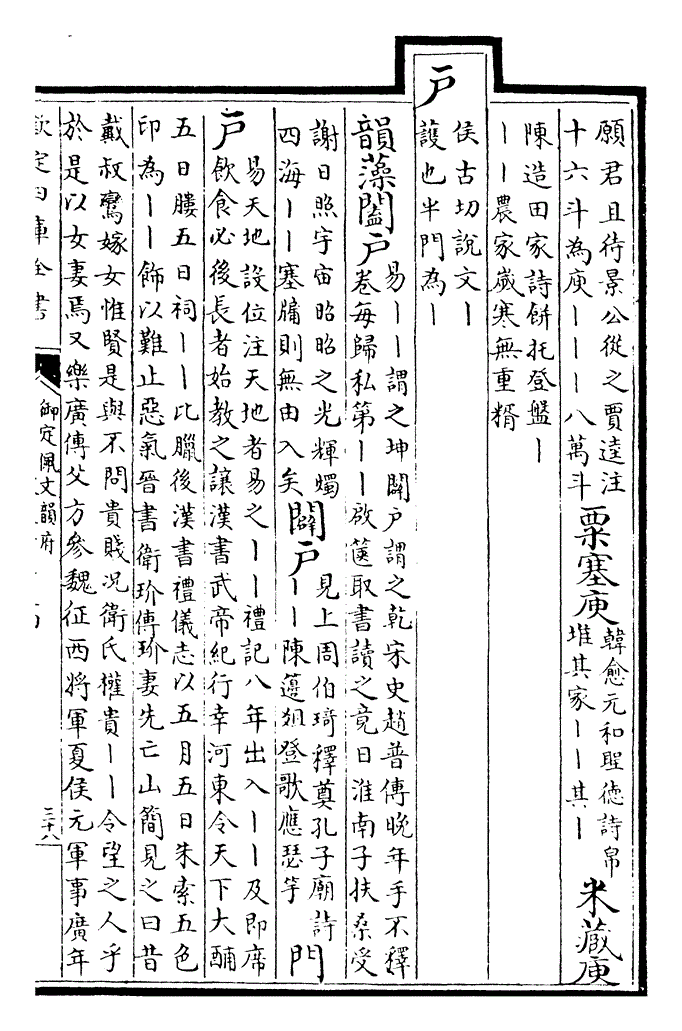 願君且待景公從之賈逵注
十六斗為庾丨丨丨八萬斗
粟塞庾
韓愈元和聖德詩帛
堆其家丨丨其丨
米藏庾
陳造田家詩餅托登盤丨
丨丨農家歲寒無重糈
戶
侯古切說文丨
護也半門為丨
韻藻闔戶
易丨丨謂之坤闢戶謂之乾宋史趙普傳晚年手不釋
卷每歸私第丨丨啟篋取書讀之竟日淮南子扶桑受
謝日照宇宙昭昭之光輝燭
四海丨丨塞牖則無由入矣
闢戶
見上周伯琦釋奠孔子廟詩
丨丨陳籩俎登歌應瑟竽
門
戶
易天地設位注天地者易之丨丨禮記八年出入丨丨及即席
飲食必後長者始教之讓漢書武帝紀行幸河東令天下大酺
五日膢五日祠丨丨比臘後漢書禮儀志以五月五日朱索五色
印為丨丨飾以難止惡氣晉書衛玠傳玠妻先亡山簡見之曰昔
戴叔鸞嫁女惟賢是與不問貴賤况衛氏權貴丨丨令望之人乎
於是以女妻焉又樂廣傳父方參魏征西將軍夏侯元軍事廣年
欽定四庫全書
御定佩文韻府
三十八